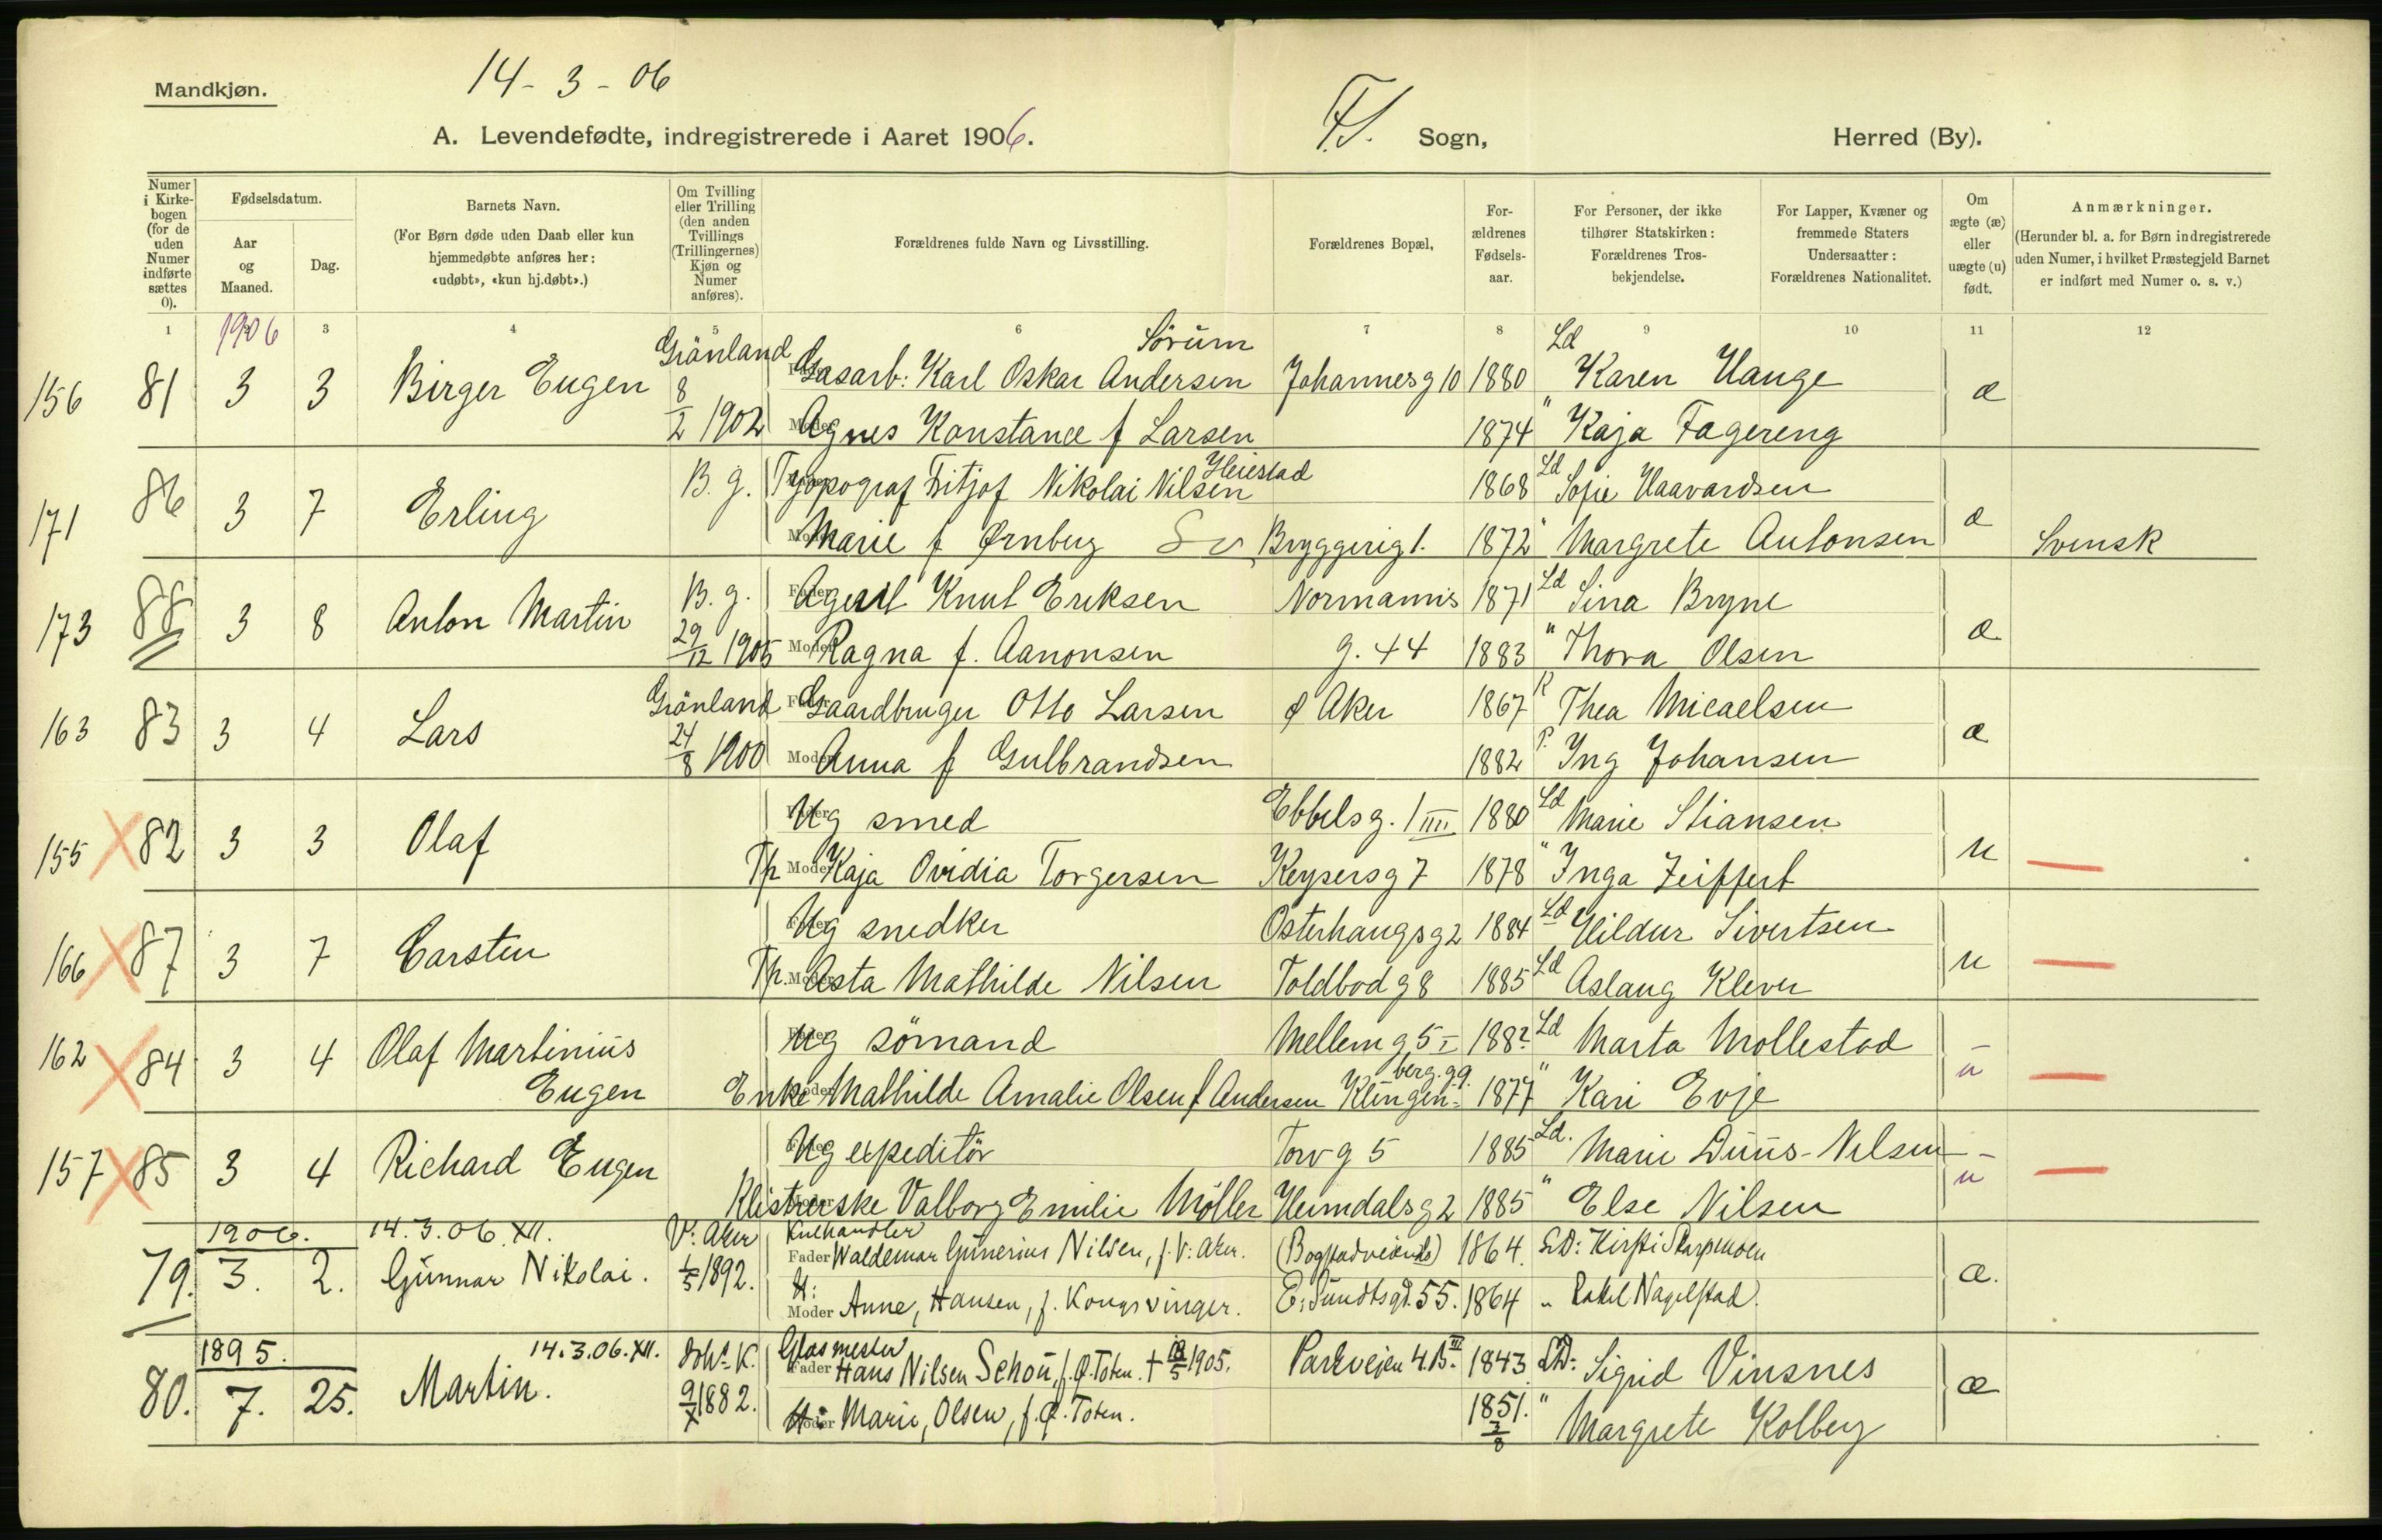 Mandkjøn.
14 - 3 - 06
A. Levendefødte, indregistrerede i Aaret 1906.
F.S. Sogn,
Herred (By).
Numer i Kirkebogen (for de uden Numer indførte sættes 0).
Fødselsdatum.
Aar og Maaned.
Dag.
Barnets Navn.
(For Børn døde uden Daab eller kun hjemmedøbte anføres her: «udøbt», «kun hj.døbt».)
Om Tvilling eller Trilling (den anden Tvillings (Trillingernes) Kjøn og Numer anføres).
Forældrenes fulde Navn og Livsstilling.
Forældrenes Bopæl,
Forældrenes Fødselsaar.
For Personer, der ikke tilhører Statskirken: Forældrenes Trosbekjendelse.
For Lapper, Kvæner og fremmede Staters Undersaatter: Forældrenes Nationalitet.
Om ægte (æ) eller uægte (u) født.
Anmærkninger.
(Herunder bl. a. for Børn indregistrerede uden Numer, i hvilket Præstegjeld Barnet er indført med Numer o. s. v.)
1 2 3 4 5 6 7 8 9 10 11 12
1906
Grönland Sörum Ld
156 81 3 3 Birger Eugen 8/2 1902 Gasarb: Karl Oskar Andersen Johannesg 10 1880 Karen Hauge æ
Agnes Konstance f Larsen 1874 " Kaja Fagereng
171 86 3 7 Erling B. g. Typograf Fritjof Nikolai Nilsen Heiestad 1868 Ld Sofie Haavardsen æ
Marie f Ørnberg Sv Bryggerig 1. 1872 " Margrete Antonsen Svensk
173 88 3 8 Anton Martin B. g. Agent Knut Eriksen Normannis 1871 Ld Sina Bryne æ
29/12 1905 Ragna f. Aanonsen g. 44 1883 " Thora Olsen
163 83 3 4 Lars Grönland Gaardbruger Otto Larsen Ø Aker 1867 Thea Micaelsen æ
24/8 1900 Anna f Gulbrandsen 1882 P. Ing Johansen
155 82 3 3 Olaf Ug smed Ebbelsg. 1 IIII 1880 Ld Marie Stiansen u
Tp Kaja Ovidia Torgersen Keysersg 7 1878 " Inga Zeiffert
166 87 3 7 Carsten Ug snedker Osterhaugsg 2 1884 Ld Hildur Sivertsen u
Tp. Asta Mathilde Nilsen Toldbodg 8 1885 Ld Aslaug Klever
162 84 3 4 Olaf Martinius Ug sömand Mellemg 5 I 188? Ld Marta Mollestad u
Eugen Enke Mathilde Amalie Olsen f Andersen Klingenberg. g 9. 1877 " Kari Evje
157 85 3 4 Richard Eugen Ug expeditör Torvg 5 1885 Ld. Marie Duus-Nilsen u
Klistrerske Valborg Emilie Möller Heimdalsg 2 1885 " Else Nilsen
1906. 14.3.06. XII. V: Aker Kulhandler
79. 3. 2. Gunnar Nikolai. 1/5 1892. Fader Waldemar Gunerius Nilsen, f. V: Aker. (Bogstadveien) 1864. LD: Kirsti Skarpmoen æ.
H: Moder Anne, Hansen, f. Kongsvinger. E: Sundtsgd. 55. 1864 " Rakel Nagelstad.
1895. 14.3.06. XII. Johs K. Glasmester
80. 7. 25. Martin. 9/X 1882. Fader Hans Nilsen Schou, f. Ø. Toten. † 18/5 1905. Parkvejen 4. B. III 1843. LD: Sigrid Vinsnes æ
H: Moder Marie, Olsen, f. Ø. Toten. 1851. 3/8 " Margrete Kolberg